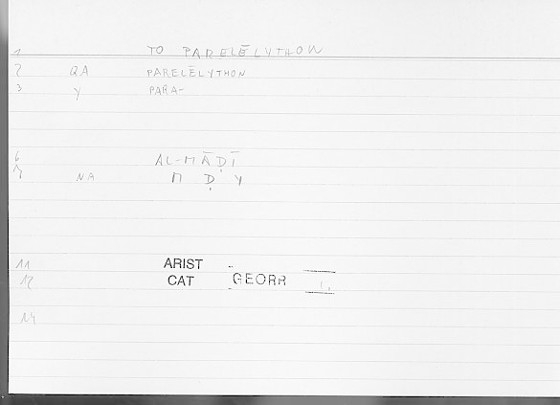 1 TO PARELĒLYTHON
2 QA PARELĒLYTHON
3 Y PARA-
6 AL-MĀḌĪ
7 NA M Ḍ Y
11 ARIST
12 CAT GEORR
14